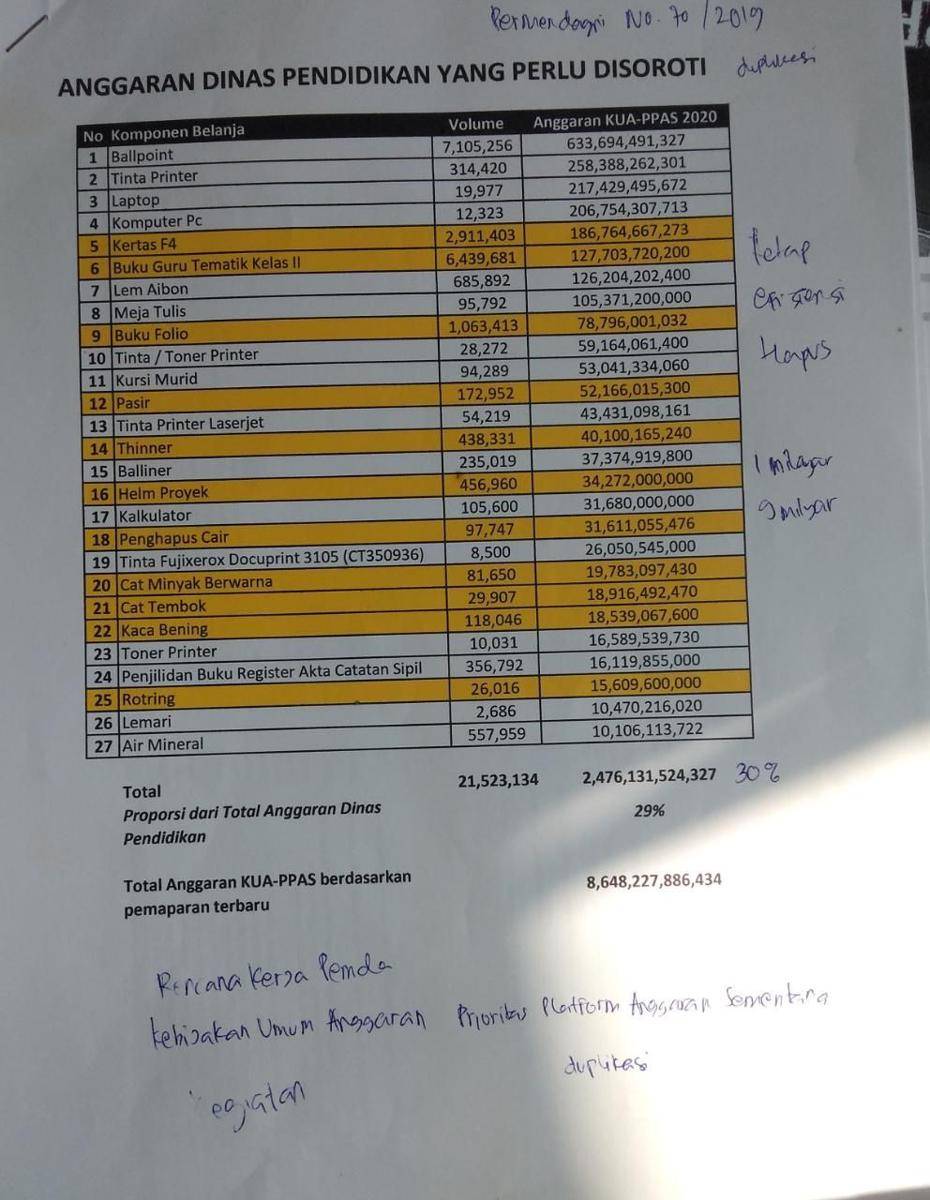 Permendagri No. 70 / 2019
ANGGARAN DINAS PENDIDIKAN YANG PERLU DISOROTI
duplikasi
No Komponen Belanja Volume Anggaran KUA-PPAS 2020
1 Ballpoint 7,105,256 633,694,491,327
2 Tinta Printer 314,420 258,388,262,301
3 Laptop 19,977 217,429,495,672
4 Komputer Pc 12,323 206,754,307,713
5 Kertas F4 2,911,403 186,764,667,273
6 Buku Guru Tematik Kelas II 6,439,681 127,703,720,200 tetap
7 Lem Aibon 685,892 126,204,202,400
8 Meja Tulis 95,792 105,371,200,000 efisiensi
9 Buku Folio 1,063,413 78,796,001,032
10 Tinta / Toner Printer 28,272 59,164,061,400 Hapus
11 Kursi Murid 94,289 53,041,334,060
12 Pasir 172,952 52,166,015,300
13 Tinta Printer Laserjet 54,219 43,431,098,161
14 Thinner 438,331 40,100,165,240
15 Balliner 235,019 37,374,919,800 1 milyar
16 Helm Proyek 456,960 34,272,000,000
17 Kalkulator 105,600 31,680,000,000 9 milyar
18 Penghapus Cair 97,747 31,611,055,476
19 Tinta Fujixerox Docuprint 3105 (CT350936) 8,500 26,050,545,000
20 Cat Minyak Berwarna 81,650 19,783,097,430
21 Cat Tembok 29,907 18,916,492,470
22 Kaca Bening 118,046 18,539,067,600
23 Toner Printer 10,031 16,589,539,730
24 Penjilidan Buku Register Akta Catatan Sipil 356,792 16,119,855,000
25 Rotring 26,016 15,609,600,000
26 Lemari 2,686 10,470,216,020
27 Air Mineral 557,959 10,106,113,722
Total 21,523,134 2,476,131,524,327 30%
Proporsi dari Total Anggaran Dinas 29%
Pendidikan
Total Anggaran KUA-PPAS berdasarkan 8,648,227,886,434
pemaparan terbaru
Rencana Kerja Pemda
Kebijakan Umum Anggaran Prioritas Platform Anggaran Sementara
duplikasi
egiatan